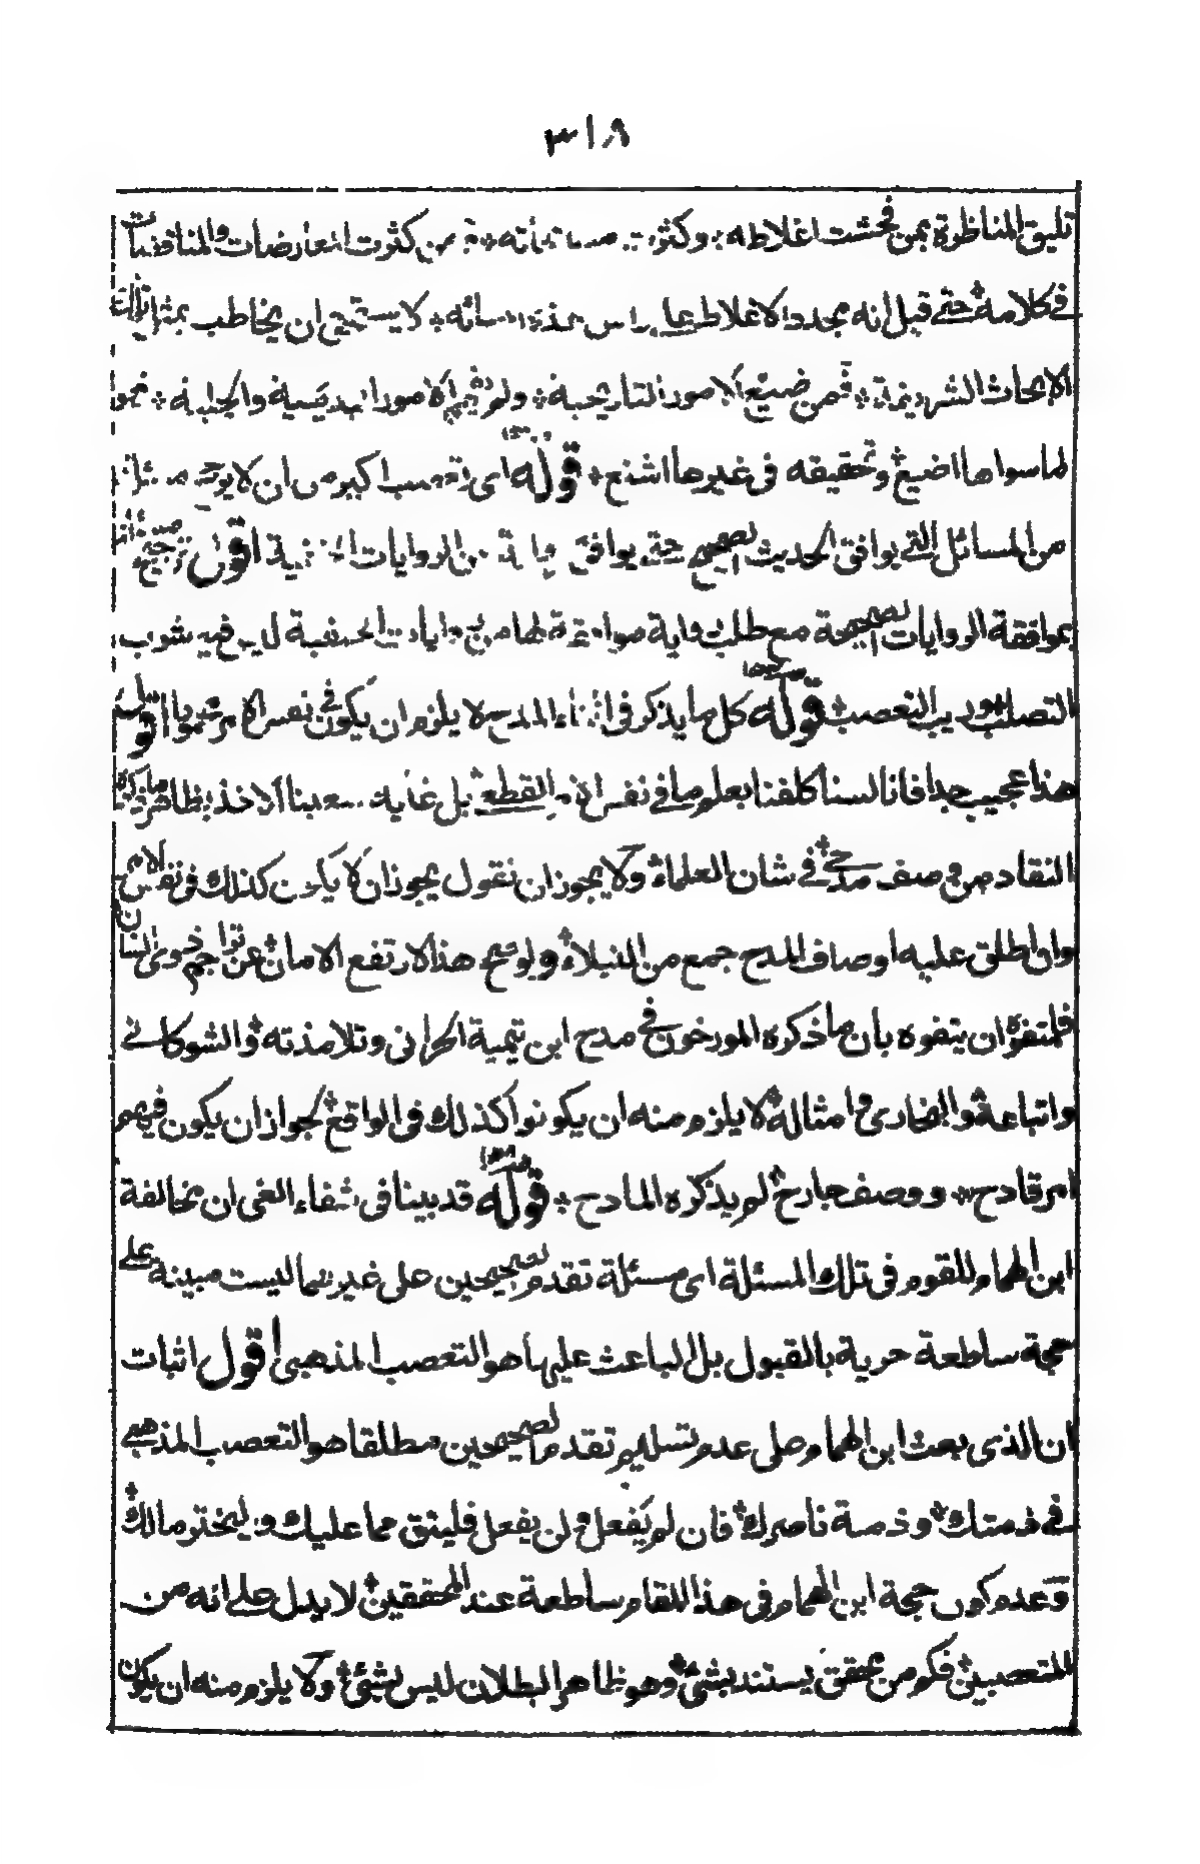 ٣١٨
تليق المناظرة بمن فحشت اغلاطه وكثرت مسامحاته فمن كثرت المعارضات والمناقضات
في كلامه حتى قيل انه مجدد الاغلاط على راس هذه المائة لا يستحق ان يخاطب بمثل تلك
الابحاث الشريفة فمن ضيع الامور التاريخية ولم يميز الامور البديهية والجلية فهو
لما سواها اضيع وتحقيقه في غيرها اشنع قوله اى تعصب اكبر من ان لا يوجد مسئلة
من المسائل التي يوافق الحديث الصحيح حتى يوافق من الروايات الحنفية اقول ترجيح
بموافقة الروايات الصحيحة مع طلب رواية موافقة لها من روايات الحنفية ليس فيه شوب
التصلب وريب التعصب قوله كل ما يذكر في اثناء المدح لا يلزم ان يكون في نفس الامر اقول
هذا عجيب جدا فانا لسنا كلفنا بعلم ما في نفس الامر القطع بل غاية سعينا الاخذ بظاهر ما ذكره
النقاد من وصف مدحي في شان العلماء ولا يجوز ان نقول يجوز ان لا يكون كذلك في نفس الامر
وان اطلق عليه اوصاف المدح جمع من النبلاء ولو صح هذا لارتفع الامان عن تراجم ذوى الشان
فلمتفوه ان يتفوه بان ما ذكره المورخون في مدح ابن تيمية الحراني وتلامذته والشوكاني
واتباعه والبخاري وامثاله لا يلزم منه ان يكونوا كذلك في الواقع لجواز ان يكون فيهم
امر قادح ووصف جارح لم يذكره المادح قوله قد بينا في شفاء العى ان مخالفة
ابن الهمام للقوم في تلك المسئلة اى مسئلة تقدم الصحيحين على غيرهما ليست مبينة على
حجة ساطعة حرية بالقبول بل الباعث عليها هو التعصب المذهبى اقول اثبات
ان الذى بعث ابن الهمام على عدم تسليم تقدم الصحيحين مطلقا هو التعصب المذهبى
في ذمتك وذمة ناصرك فان لم يفعل ولن يفعل فليتق مما عليك وليختر مالك
وعدم كون حجة ابن الهمام في هذا المقام ساطعة عند المحققين لا يدل على انه من
المتعصبين فكم من محقق يستند بشئ وهو ظاهر البطلان ليس بشئ ولا يلزم منه ان يكون